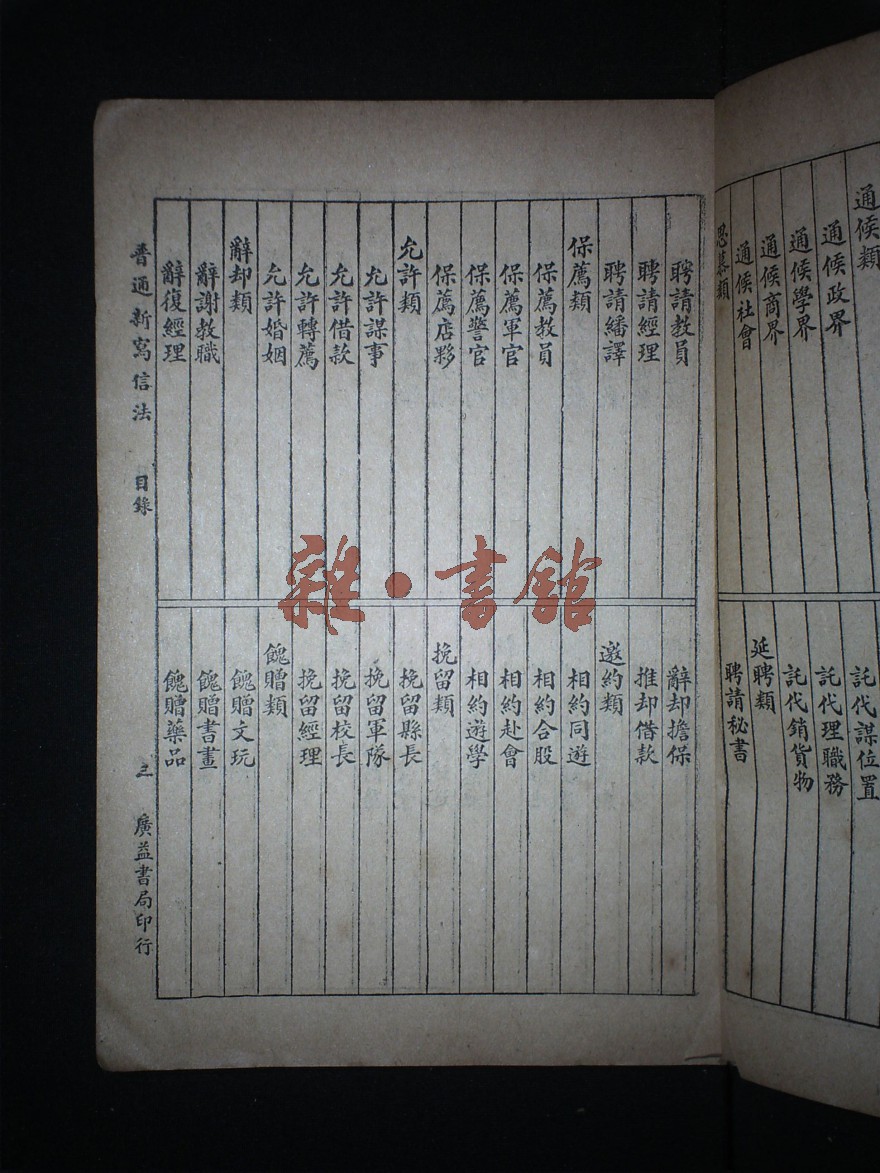 通候類
通候政界
通候學界
通候商界
通候社會
思慕類
託代謀位置
託代理職務
託代銷貨物
延聘類
聘請秘書
聘請教員
聘請經理
聘請繙譯
保薦類
保薦教員
保薦軍官
保薦警官
保薦店夥
允許類
允許謀事
允許借款
允許轉薦
允許婚姻
辭却類
辭謝教職
辭復經理
辭却擔保
推却借款
邀約類
相約同遊
相約合股
相約赴會
相約遊學
挽留類
挽留縣長
挽留軍隊
挽留校長
挽留經理
餽贈類
餽贈文玩
餽贈書畫
餽贈藥品
普通新寫信法 目錄 三 廣益書局印行
雜·書館